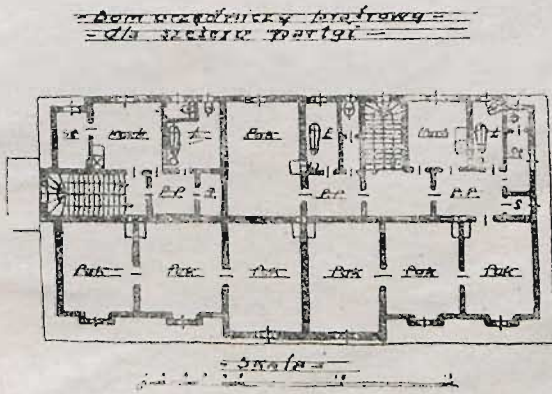 Dom urzędniczy piętrowy
dla sześciu partyi
Kuch Ł Pok Ł Kuch Ł
P.P. S P.P. P.P. S
Pok Pok Pok Pok Pok Pok
Skala